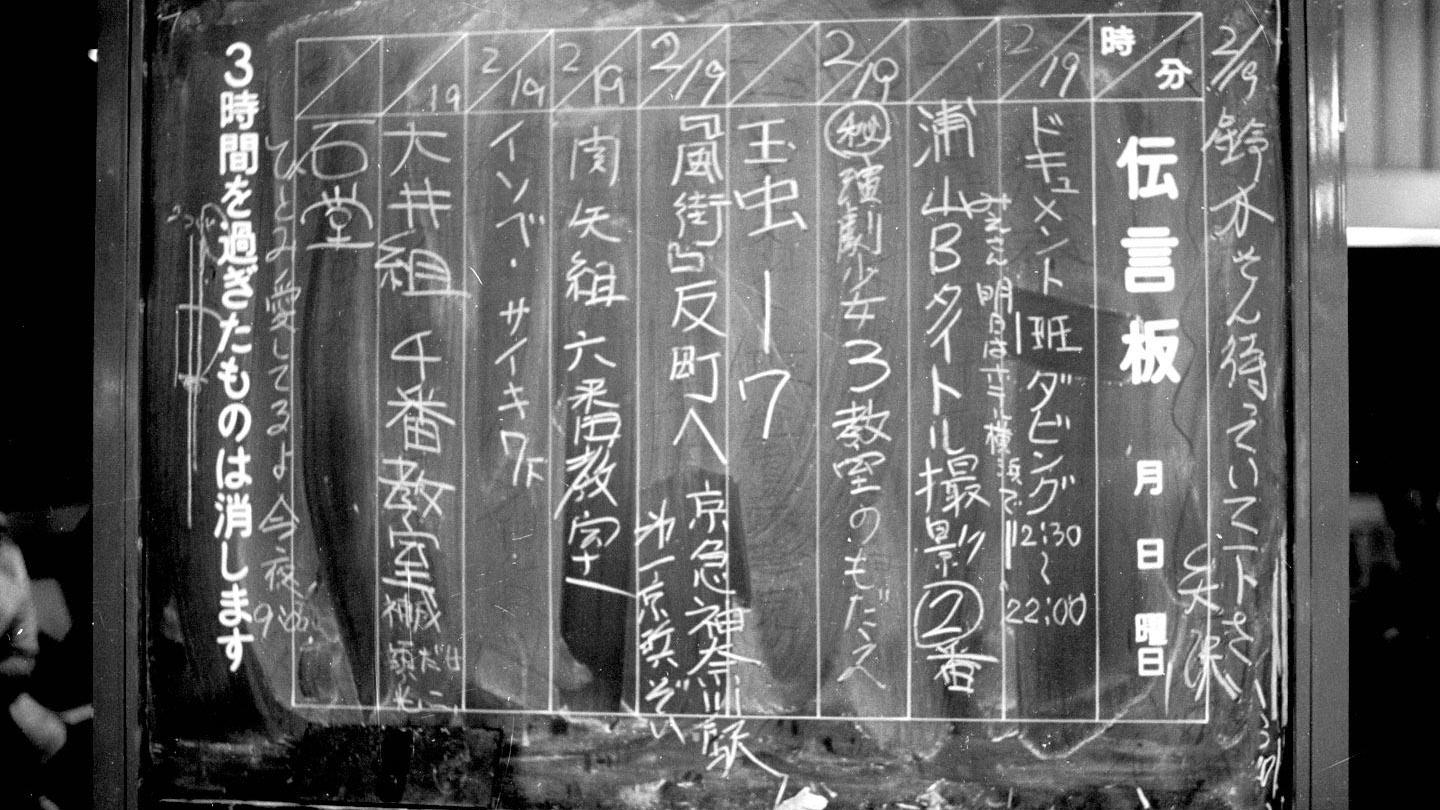 2/19 鈴木さん待っていて下さい
時分
伝言板 月 日 曜日
2/19
ドキュメント1班ダビング 12:30〜22:00
みえさん明日は
横浜で
浦山Bタイトル撮影②番
2/19
㊙演劇少女3教室のもだえ
玉虫ー7
2/19
『風街』反町へ 京急神奈川駅
第一京浜ぞい
2/19
関矢組 六番教室
2/19
イソベ・サイキ7F
19
大井組 千番教室
石堂
ひとみ愛してるよ今夜9
3時間を過ぎたものは消します